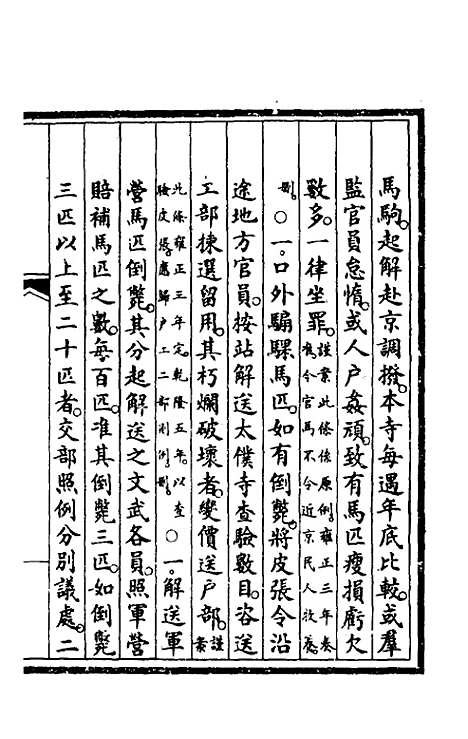 馬駒。起解赴京調撥。本寺每遇年底比較。或羣
監官員怠惰。或人戶姦頑。致有馬匹瘦損虧欠
數多。一律坐罪。謹案此條係原例。雍正三年奏准。今官馬不令近京民人牧養。
刪。○一。口外騸騍馬匹。如有倒斃。將皮張令沿
途地方官員。按站解送太僕寺查驗數目。咨送
工部揀選留用。其朽爛破壞者。變價送戶部。謹案
此條雍正三年定。乾隆五年。以查驗皮張。應歸戶工二部則例。刪。○一。解送軍
營馬匹倒斃。其分起解送之文武各員。照軍營
賠補馬匹之數。每百匹。准其倒斃三匹。如倒斃
三匹以上至二十匹者。交部照例分別議處。二